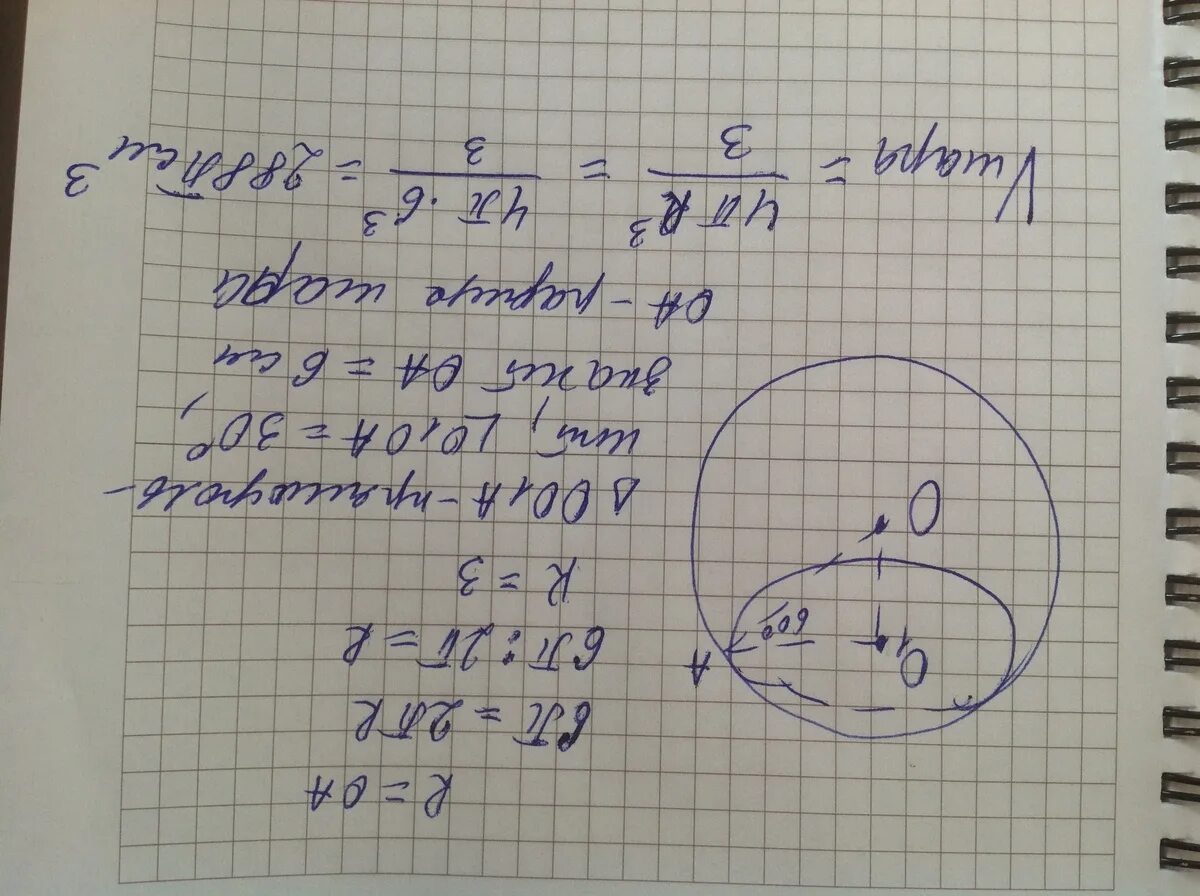 R = OA
6π = 2πR
6π : 2π = R
R = 3
Δ OO₁A - прямоуголь-
ный, ∠O₁OA = 30°,
значит OA = 6 см
OA - радиус шара
V шара = 4πR³/3 = 4π·6³/3 = 288π см³
A
O₁
60°
O